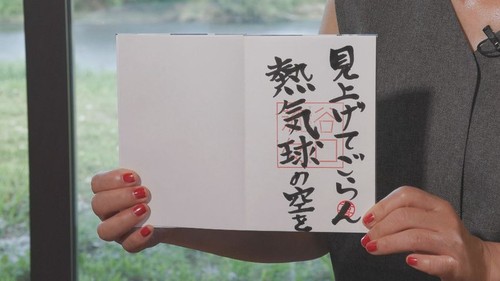 見上げてごらん
熱気球の空を